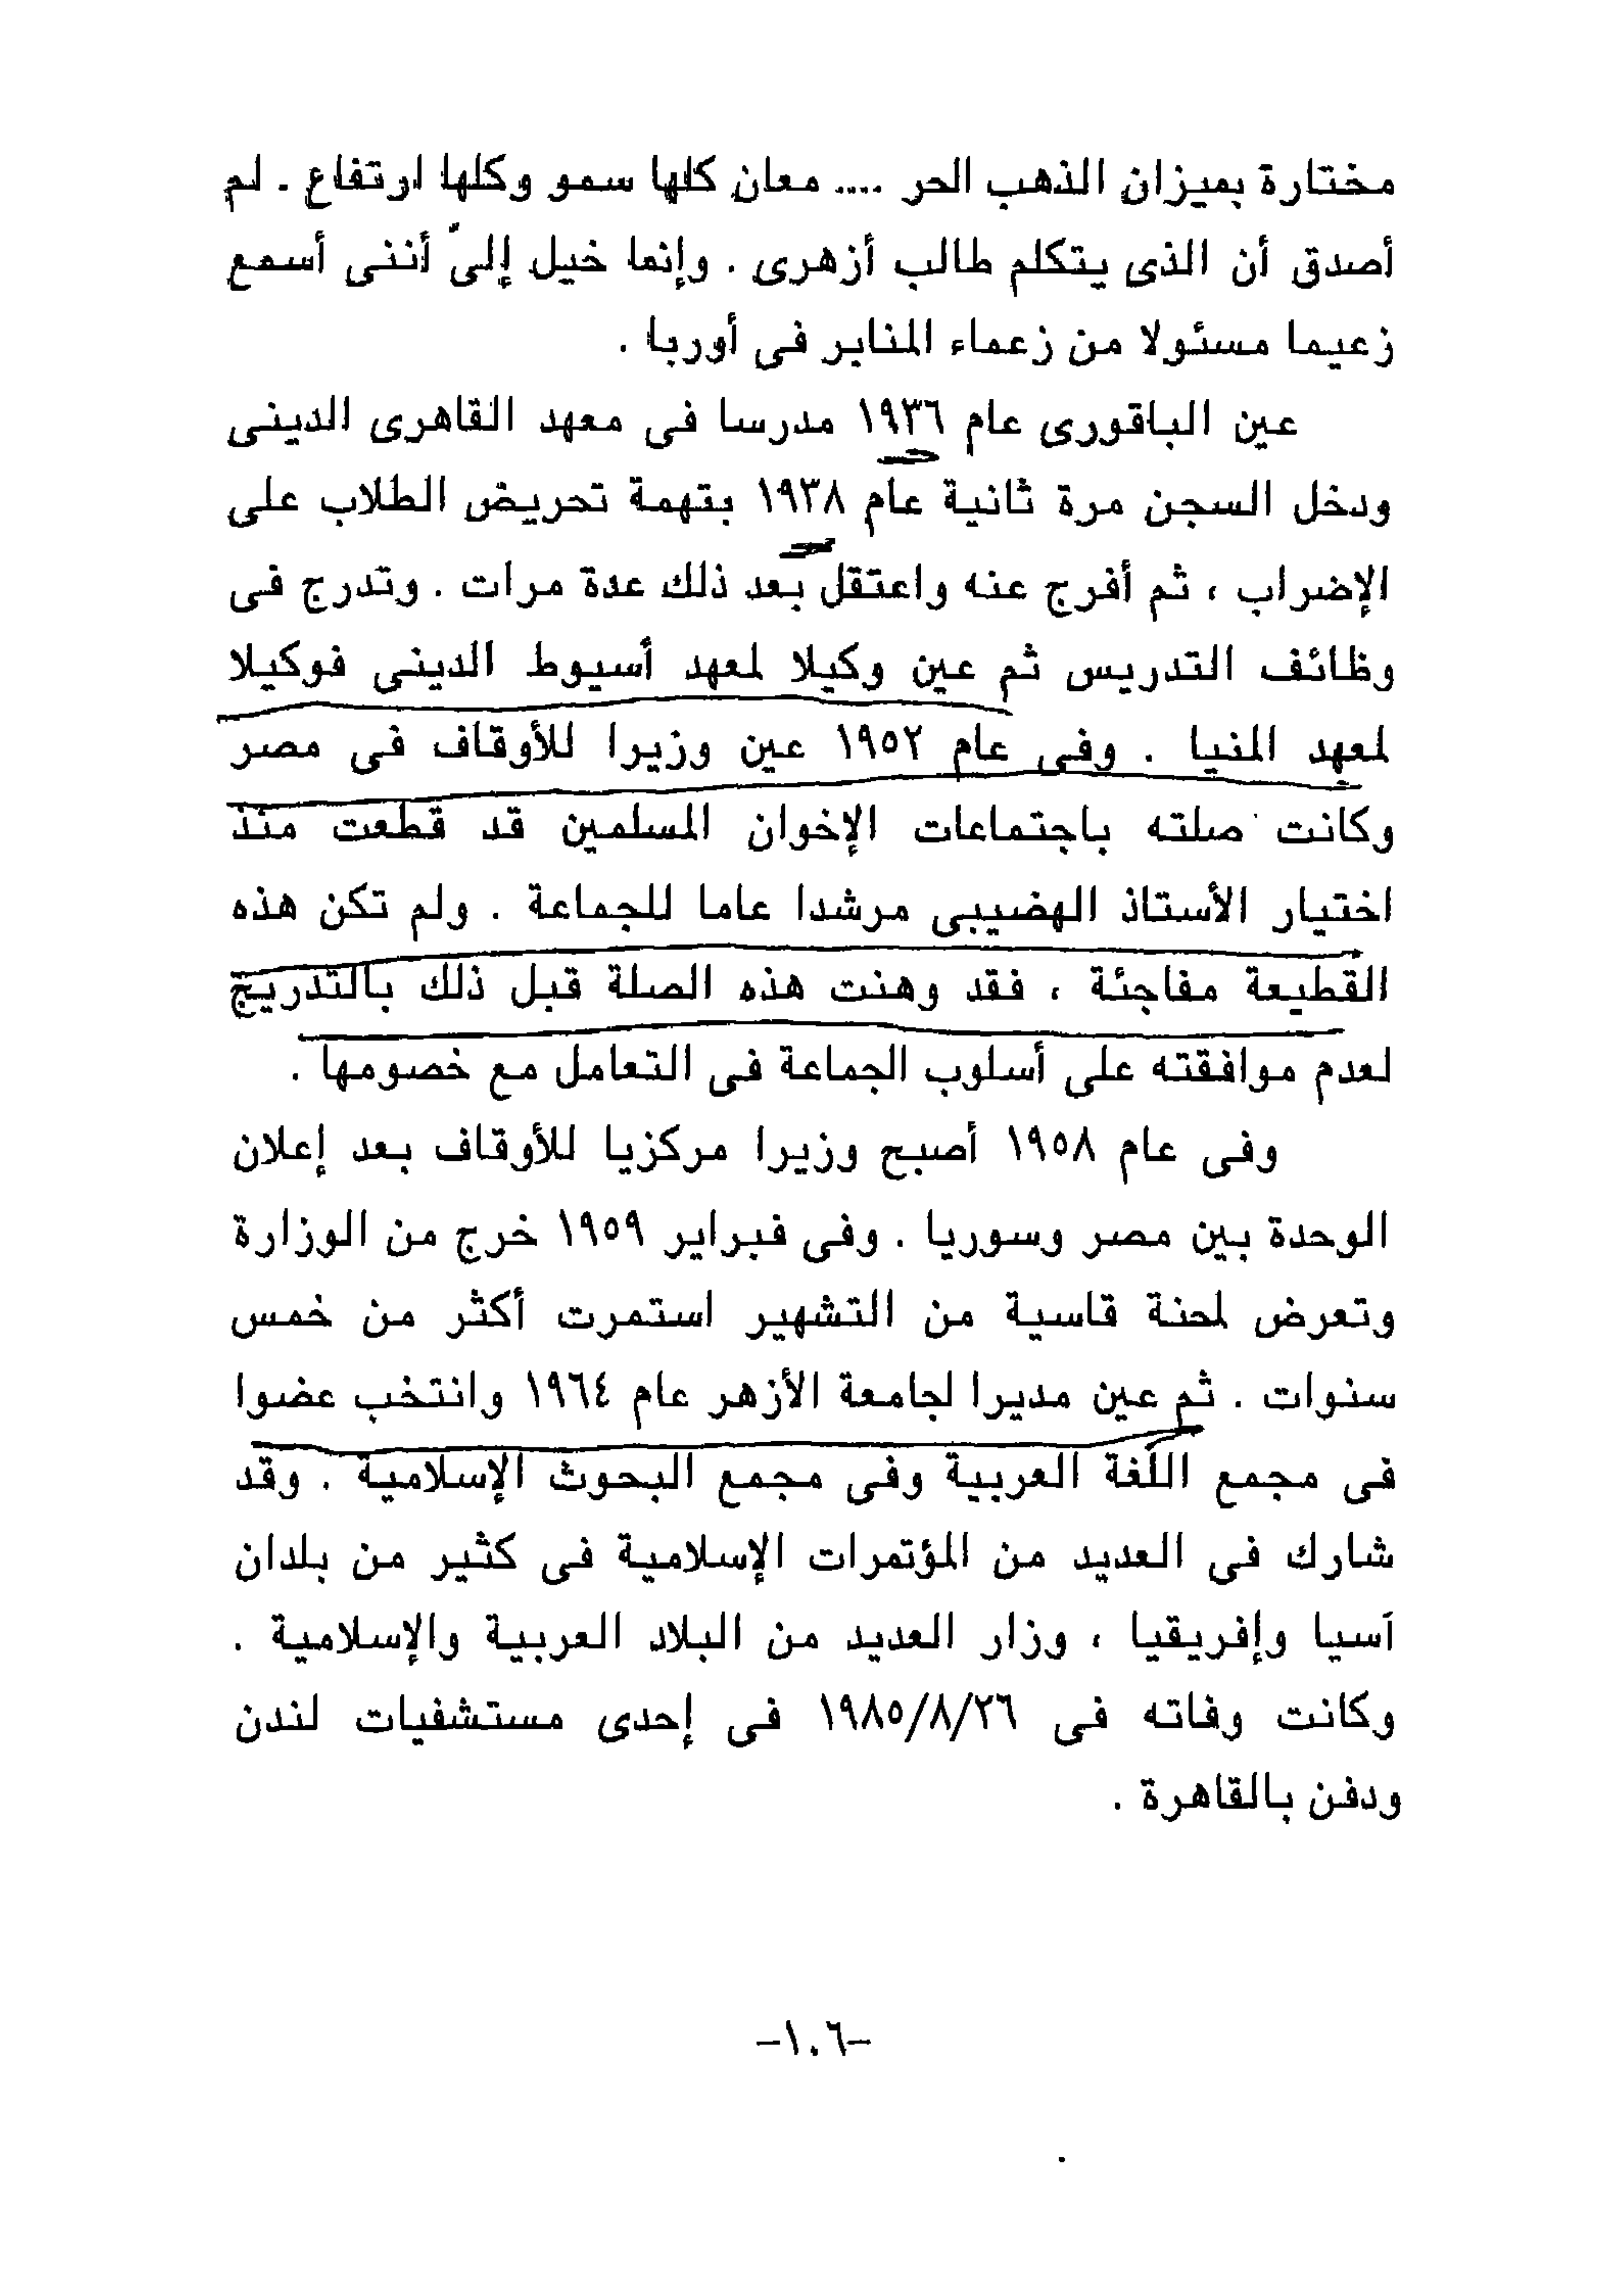 مختارة بميزان الذهب الحر .... معان كلها سمو وكلها ارتفاع . لم
أصدق أن الذى يتكلم طالب أزهرى . وإنما خيل إلىّ أننى أسمع
زعيما مسئولا من زعماء المنابر فى أوربا .
عين الباقورى عام ١٩٣٦ مدرسا فى معهد القاهرى الدينى
ودخل السجن مرة ثانية عام ١٩٣٨ بتهمة تحريض الطلاب على
الإضراب ، ثم أفرج عنه واعتقل بعد ذلك عدة مرات . وتدرج فى
وظائف التدريس ثم عين وكيلا لمعهد أسيوط الدينى فوكيلا
لمعهد المنيا . وفى عام ١٩٥٢ عين وزيرا للأوقاف فى مصر
وكانت صلته باجتماعات الإخوان المسلمين قد قطعت منذ
اختيار الأستاذ الهضيبى مرشدا عاما للجماعة . ولم تكن هذه
القطيعة مفاجئة ، فقد وهنت هذه الصلة قبل ذلك بالتدريج
لعدم موافقته على أسلوب الجماعة فى التعامل مع خصومها .
وفى عام ١٩٥٨ أصبح وزيرا مركزيا للأوقاف بعد إعلان
الوحدة بين مصر وسوريا . وفى فبراير ١٩٥٩ خرج من الوزارة
وتعرض لمحنة قاسية من التشهير استمرت أكثر من خمس
سنوات . ثم عين مديرا لجامعة الأزهر عام ١٩٦٤ وانتخب عضوا
فى مجمع اللغة العربية وفى مجمع البحوث الإسلامية . وقد
شارك فى العديد من المؤتمرات الإسلامية فى كثير من بلدان
آسيا وإفريقيا ، وزار العديد من البلاد العربية والإسلامية .
وكانت وفاته فى ١٩٨٥/٨/٢٦ فى إحدى مستشفيات لندن
ودفن بالقاهرة .
-١٠٦-